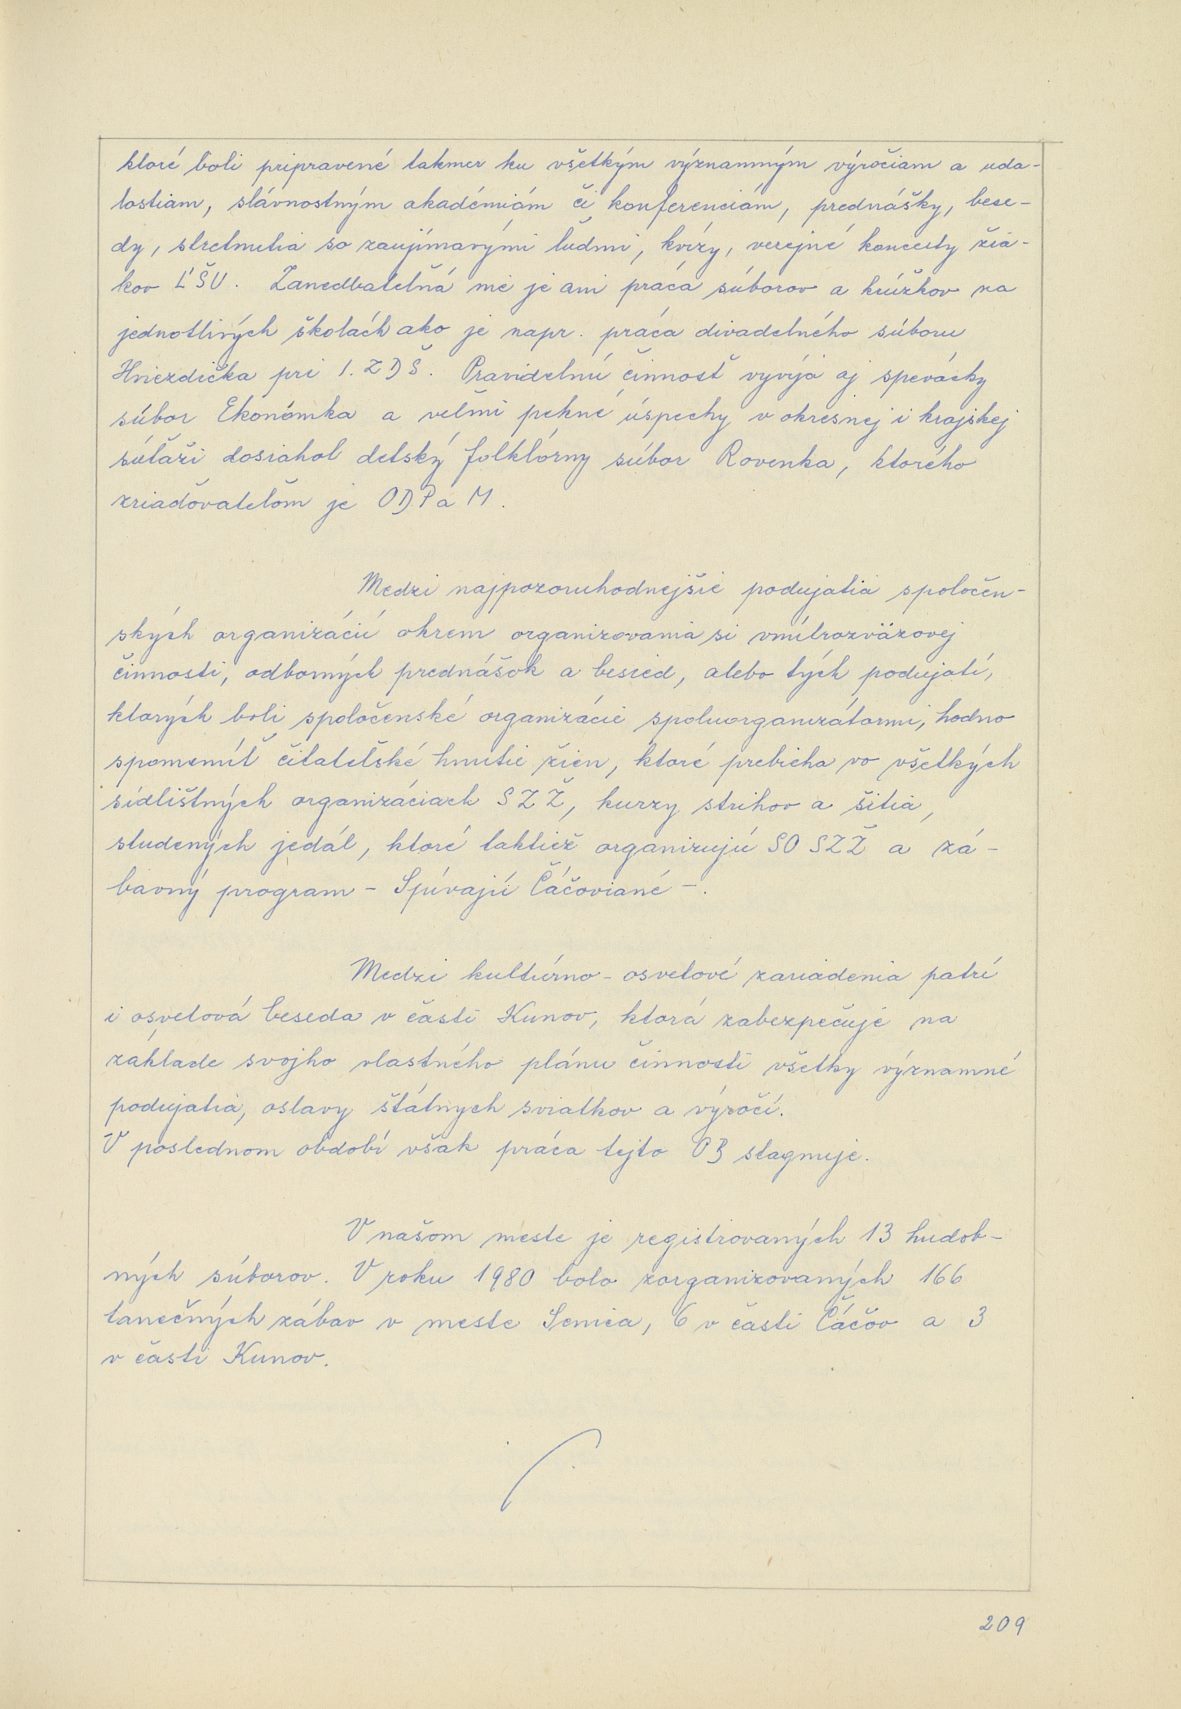 ktoré boli pripravené takmer ku všetkým významným výročiam a uda-
lostiam, slávnostným akadémiám či konferenciám, prednášky, bese-
dy, stretnutia so zaujímavými ľuďmi, kvízy, verejné koncerty žia-
kov ĽŠU. Zanedbateľná nie je ani práca súborov a krúžkov na
jednotlivých školách ako je napr. práca divadelného súboru
Hniezdička pri 1. ZDŠ. Pravidelnú činnosť vyvýja aj spevácky
súbor Ekonómka a veľmi pekné úspechy v okresnej i krajskej
súťaži dosiahol detský folklórny súbor Rovenka, ktorého
zriaďovateľom je ODPaM.
Medzi najpozoruhodnejšie podujatia spoločen-
ských organizácií okrem organizovania si vnútrozväzovej
činnosti, odborných prednášok a besied, alebo tých podujatí,
ktorých boli spoločenské organizácie spoluorganizátormi, hodno
spomenúť čitateľské hnutie žien, ktoré prebieha vo všetkých
sídlištných organizáciach SZŽ, kurzy strihov a šitia,
studených jedál, ktoré taktiež organizujú SO SZŽ a zá-
bavný program - Spívajú Čáčoviané -.
Medzi kultúrno-osvetové zariadenia patrí
i osvetová beseda v časti Kunov, ktorá zabezpečuje na
základe svojho vlastného plánu činnosti všetky významné
podujatia, oslavy štátnych sviatkov a výročí.
V poslednom období však práca tejto OB stagnuje.
V našom meste je registrovaných 13 hudob-
ných súborov. V roku 1980 bolo zorganizovaných 166
tanečných zábav v meste Senica, 6 v časti Čáčov a 3
v časti Kunov.
209